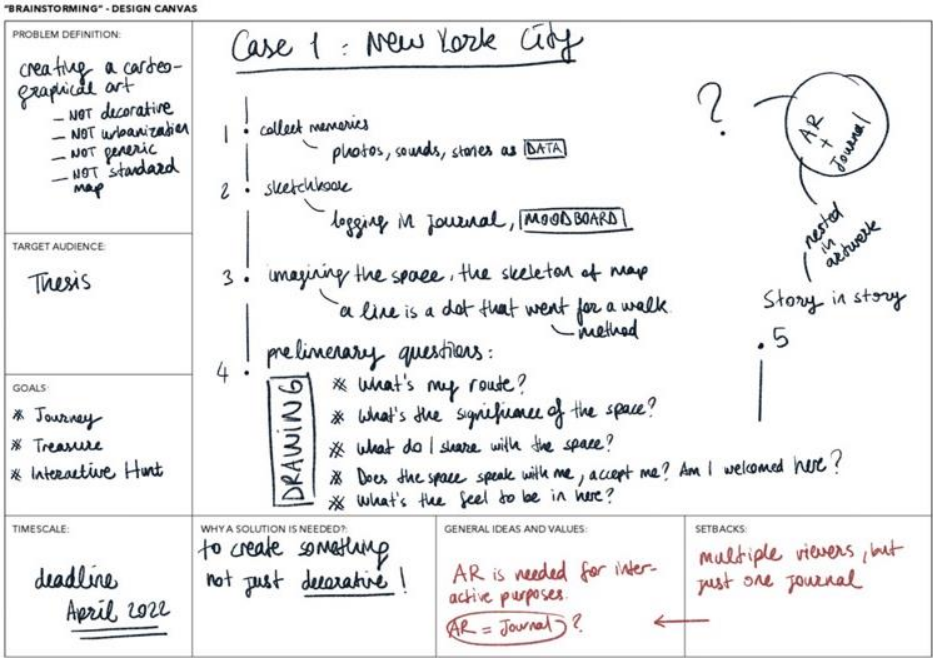 "BRAINSTORMING" - DESIGN CANVAS
PROBLEM DEFINITION:
creating a carto-
graphical art
— NOT decorative
— NOT urbanization
— NOT generic
— NOT standard
map
TARGET AUDIENCE:
Thesis
GOALS:
* Journey
* Treasure
* Interactive Hunt
Case 1 : New York City
1 . collect memories
photos, sounds, stories as DATA
2 . sketchbook
logging in journal, MOODBOARD
3 . imagining the space, the skeleton of map
a line is a dot that went for a walk
method
4 . prelimenary questions:
DRAWING
* What's my route?
* What's the significance of the space?
* What do I share with the space?
* Does the space speak with me, accept me? Am I welcomed here?
* What's the feel to be in here?
?
AR
+
Journal
nested
in
artwork
Story in story
. 5
TIMESCALE:
deadline
April 2022
WHY A SOLUTION IS NEEDED?:
to create something
not just decorative !
GENERAL IDEAS AND VALUES:
AR is needed for inter-
active purposes.
AR = Journal ?
SETBACKS:
multiple viewers, but
just one journal
←